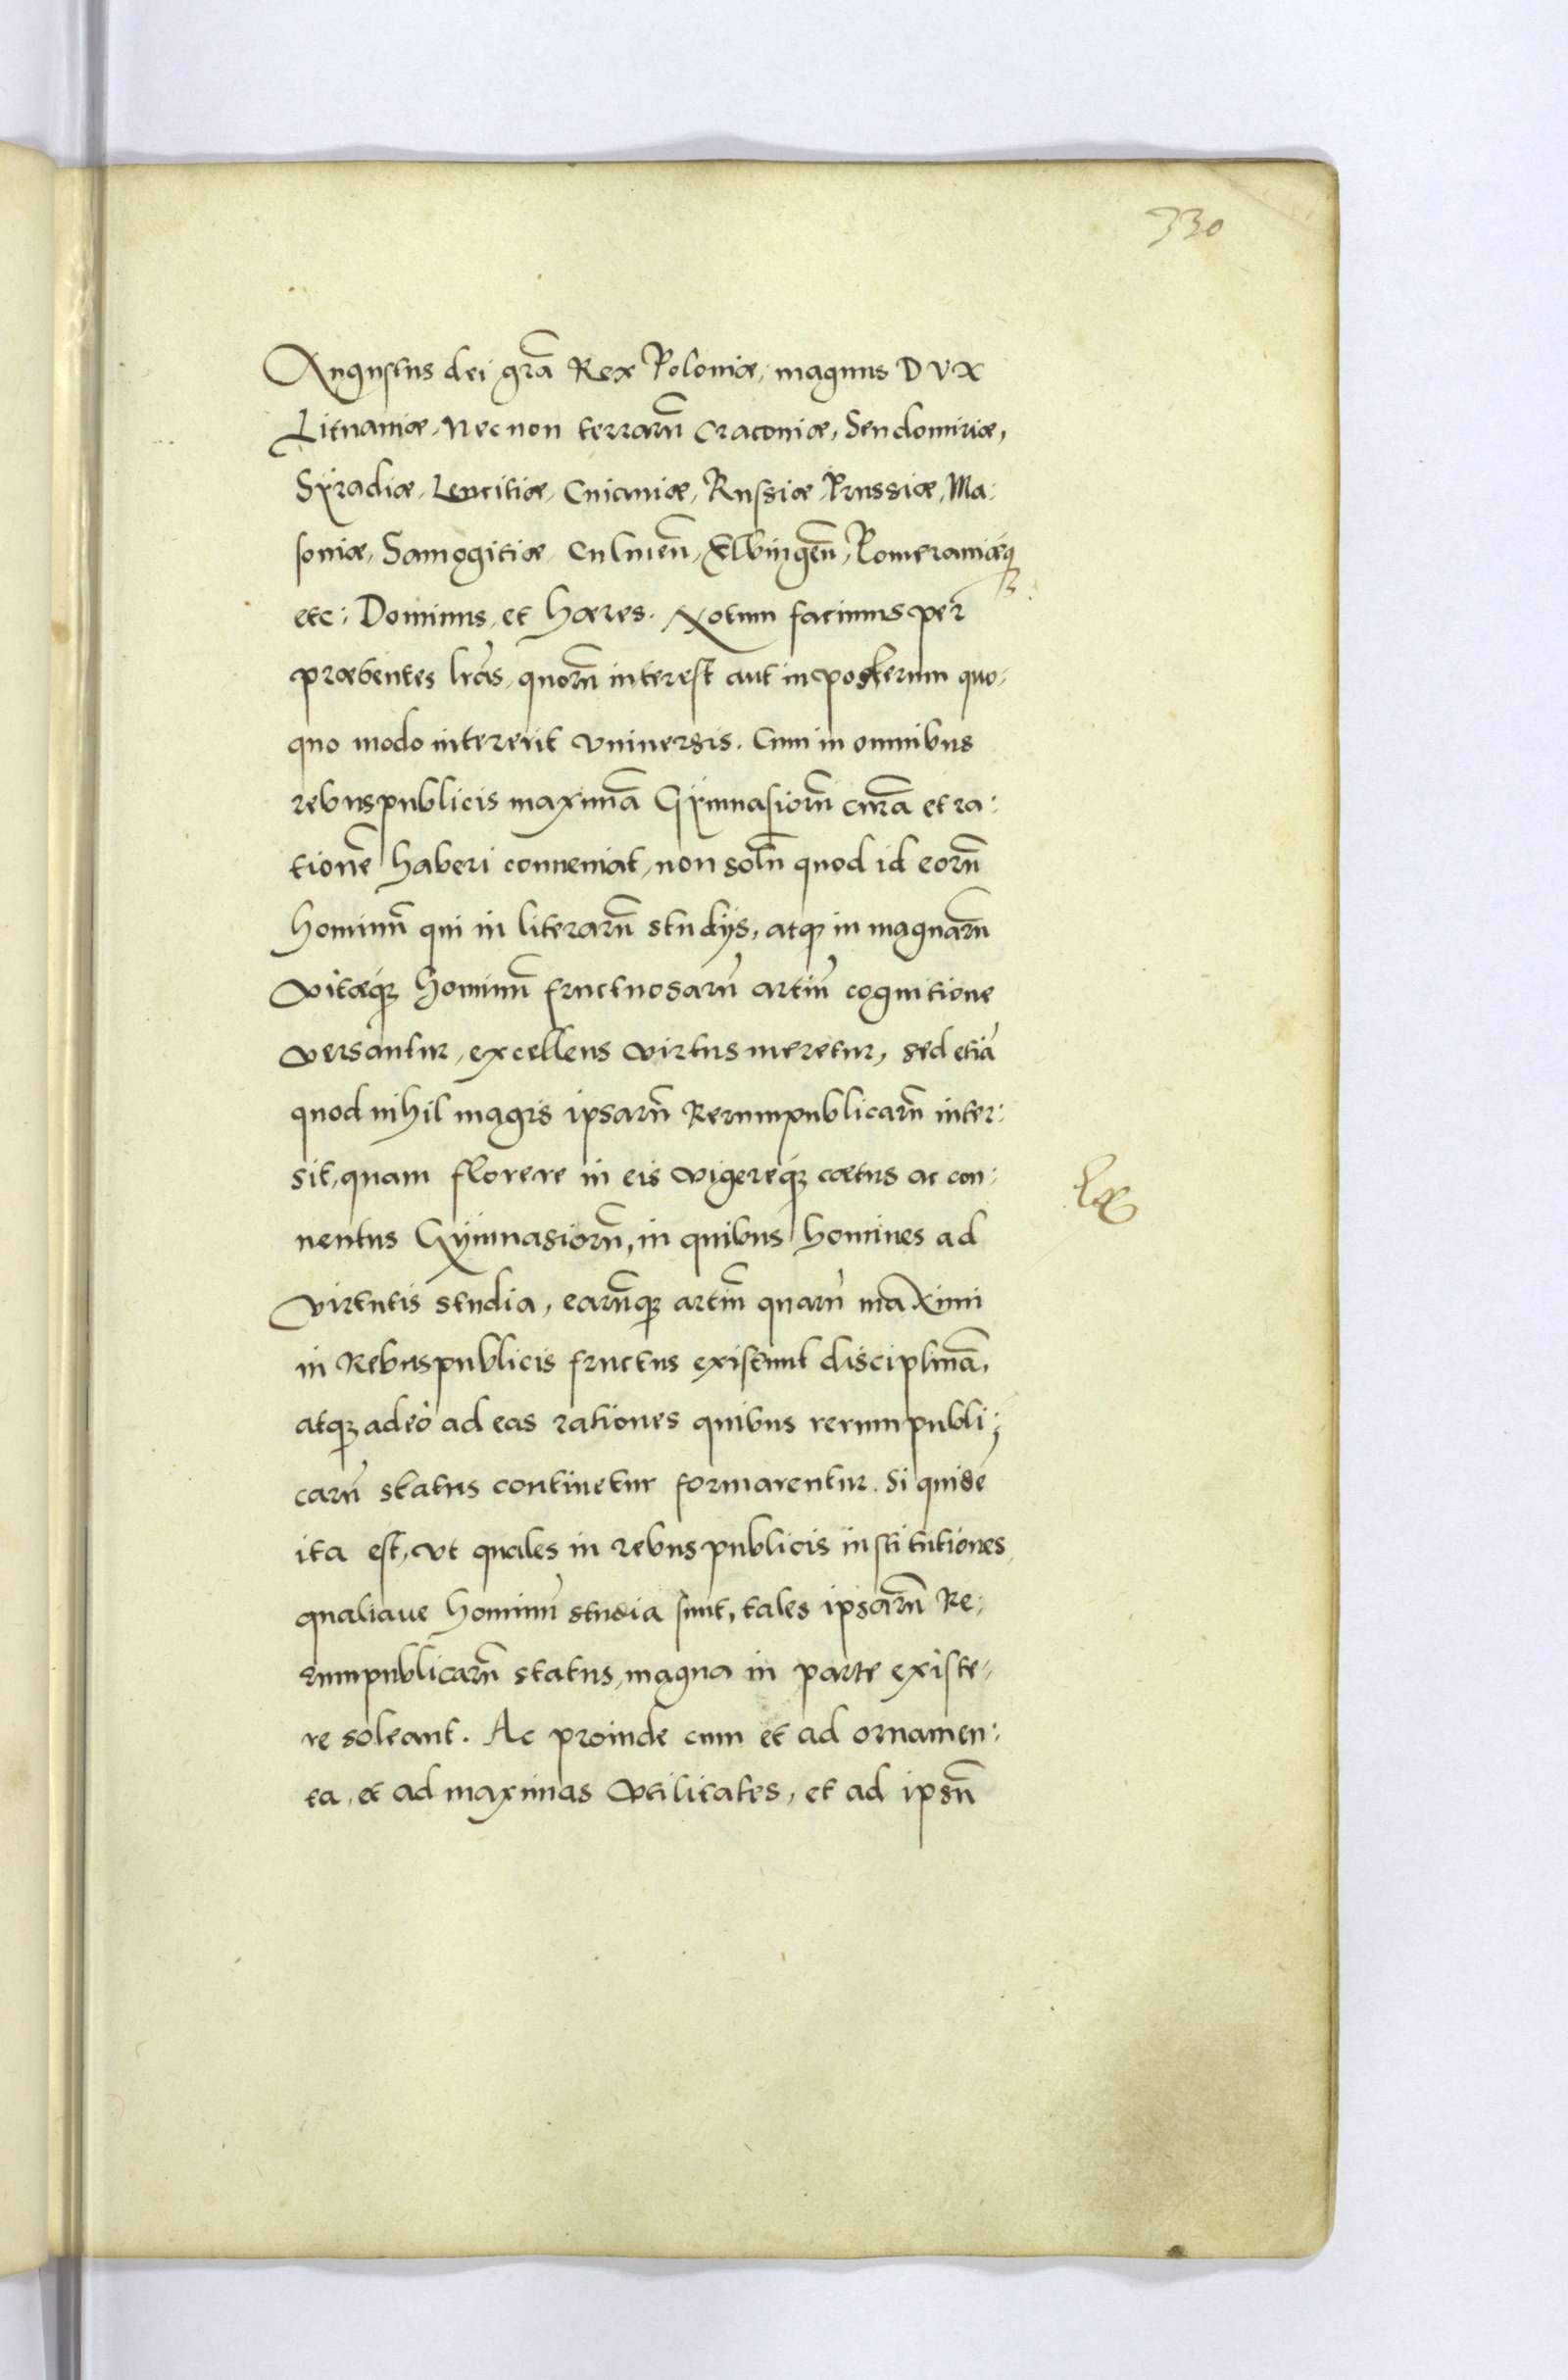 330
Augustus dei gr̃a Rex Poloniæ, magnus DVX
Lituaniæ, Nec non terrarũ Cracoviæ, Sendomiriæ,
Syradiæ, Lencitiæ, Cuiaviæ, Russiæ, Prussiæ, Ma:
soviæ, Samogitiæ, Culmeñ, Elbingeñ, Pomeraniæq3
etc: Dominus, et hæres. Notum facimus per
præsentes lr̃as, quorũ interest aut in posterum quo,
quo modo intererit vniuersis. Cum in omnibus
rebuspublicis maximã Gymnasiorũ curã et ra:
tionẽ haberi conueniat, non solũ quod id eorũ
hominũ qui in literarũ studijs, atq3 in magnarũ
vitæq3 hominũ fructuosarũ artiũ cognitione
versantur, excellens virtus meretur, sed etiã
quod nihil magis ipsarũ Rerumpublicarũ inter:
sit, quam florere in eis vigereq3 cœtus ac con:
uentus Gymnasiorũ, in quibus homines ad
virtutis studia, earũq3 artiũ quarũ maximi
in Rebuspublicis fructus existunt disciplinã,
atq3 adeò ad eas rationes quibus rerumpubli:
carũ status continetur formarentur. Si quidẽ
ita est, vt quales in rebuspublicis institutiones,
qualiaue hominũ studia sunt, tales ipsarũ Re:
rumpublicarũ status, magna in parte existe,
re soleant. Ac proinde cum et ad ornamen:
ta, et ad maximas vtilitates, et ad ipsũ